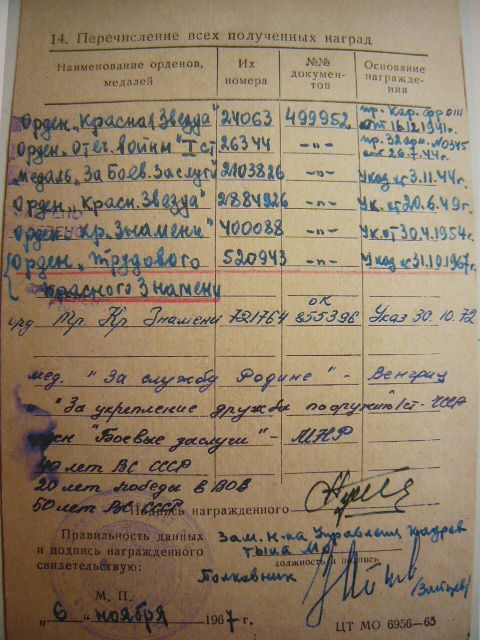 14. Перечисление всех полученных наград
Наименование орденов, медалей
Их номера
№№ документов
Основание награждения
Орден „Красная Звезда" 24063 499952 пр. Кар. фр 0111 от 16.12.1941г.
Орден „Отеч. войны" I ст 26344 -„- пр. 32 арм. №0345 от 26.7.44г.
Медаль „За Боев. Заслуги" 2103826 -„- Указ от 3.11.44г.
Орден „Красн. Звезда" 2884926 -„- Ук. от 20.6.49г.
Орден „Кр. Знамени" 400088 -„- Ук. от 30.4.1954г.
Орден „Трудового 520943 -„- Указ от 31.10.1967г.
Красного Знамени
орд Тр Кр Знамени 721764 ОК 855396 Указ 30.10.72
мед. "За службу Родине" - Венгрия
" "За укрепление дружбы по оружию I ст - ЧССР
"Боевые заслуги" - МНР
40 лет ВС СССР
20 лет победы в ВОВ
50 лет ВС СССР
Подпись награжденного
Правильность данных
и подпись награжденного
свидетельствую:
Зам. н-ка Управления кадров
тыла МО
должность и подпись
Полковник
(Зайцев)
М. П.
„6" ноября 1967 г.
ЦТ МО 6956-63